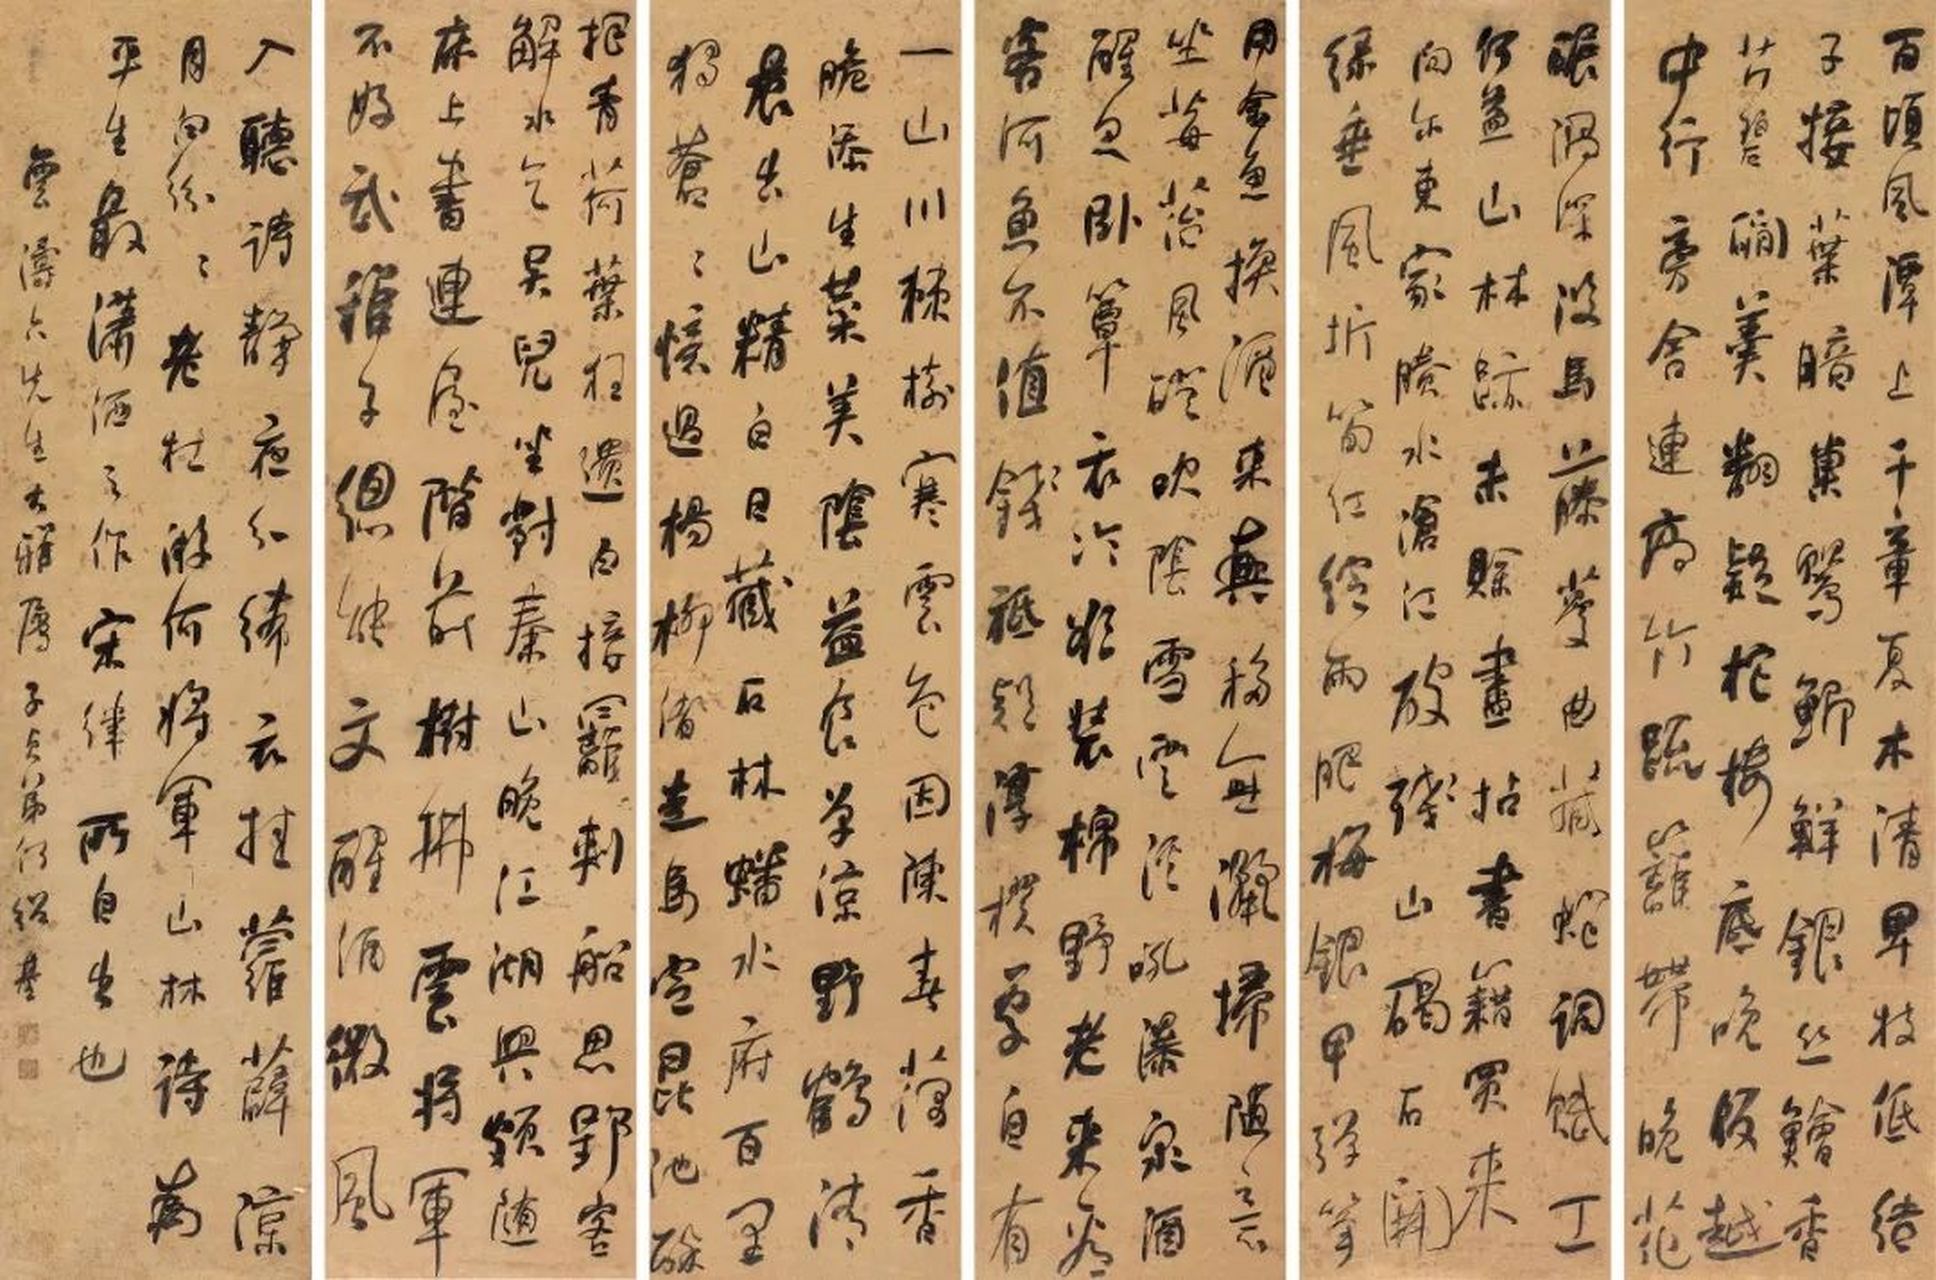 百頃風潭上千章夏木清卑枝低結
子接葉暗巢鶯鯽鮮銀絲鱠香
芹碧澗羹翻疑柁樓底晚飯越
中行旁舍連高竹疏籬帶晚花
碾渦深没馬藤蔓曲藏蛇詞賦工
何益山林跡未賒盡拈書籍買來
向尔東家賸水滄江破殘山碣石開
綠垂風折筍紅綻雨肥梅銀甲彈箏
用金魚換酒來興移無灑掃隨意
坐莓苔風磴吹陰雪雲吼瀑泉酒
醒思臥簟衣冷欲裝棉野老來看
客河魚不值錢祗疑淳樸處自有
一山川棘樹寒雲色因陳春藕香
脆添生菜美陰益食單涼野鶴清
晨出山精白日藏石林蟠水府百里
獨蒼〻憶過楊柳渚走馬定昆池醉
把青荷葉狂遺白接䍦刺船思郢客
解水乞吳兒坐對秦山晚江湖興頗隨
床上書連屋階前樹拂雲將軍
不好武稚子總能文醒酒微風
入聽詩靜夜分絺衣挂蘿薜涼
月白紛〻老杜游何將軍山林詩為
平生最瀟洒之作宋律所自出也
雲濤六先生大雅屬子貞弟何紹基